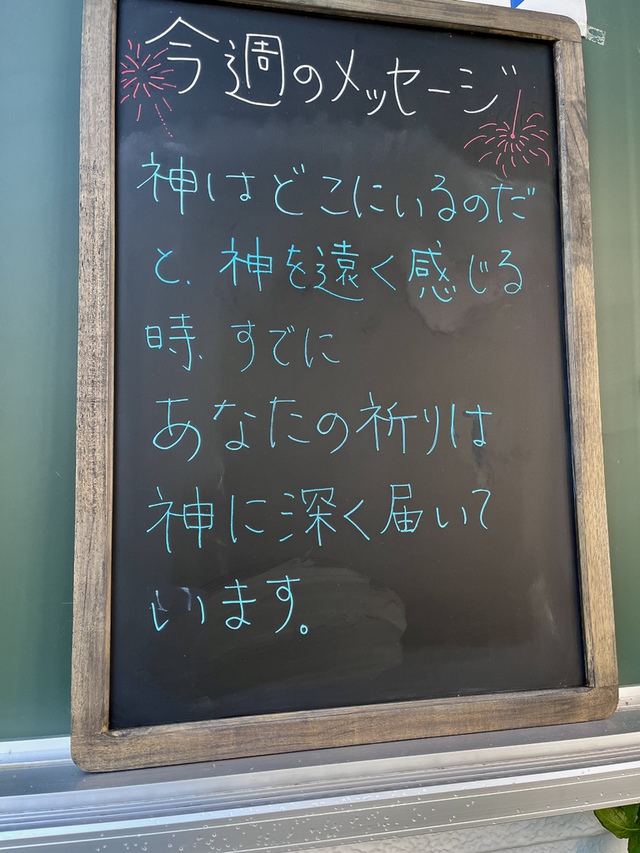 今週のメッセージ
神はどこにいるのだ
と、神を遠く感じる
時、すでに
あなたの祈りは
神に深く届いて
います。